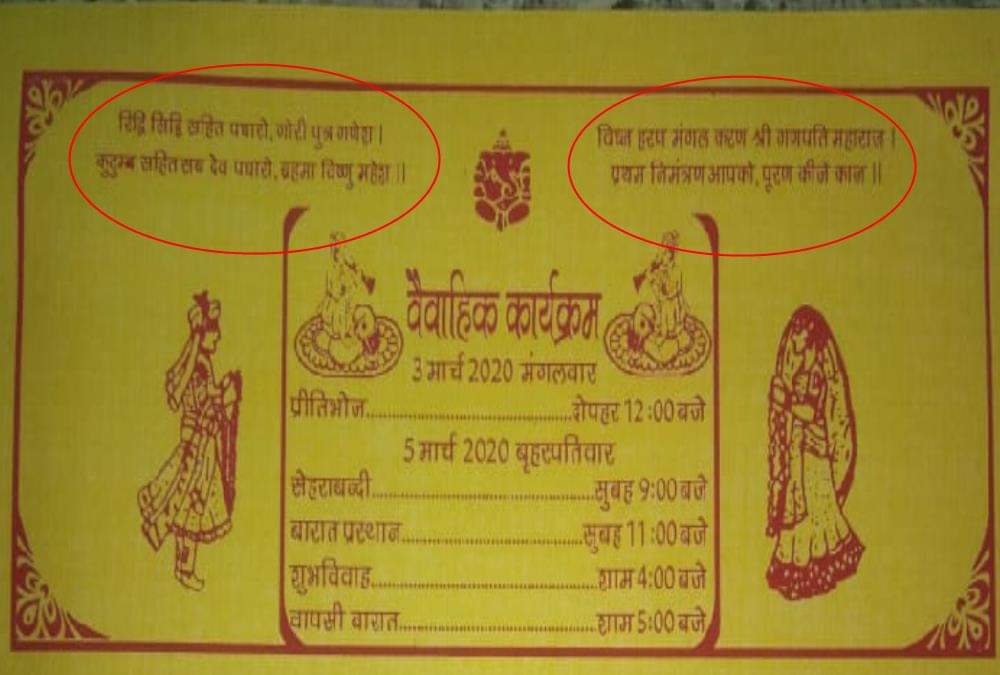 रिद्धि सिद्धि सहित पधारो, गोरी पुत्र गणेश।
कुटुम्ब सहित सब देव पधारो, ब्रहमा विष्णु महेश।।
विघ्न हरण मंगल करण श्री गणपति महाराज।
प्रथम निमंत्रण आपको, पूरण कीजे काज।।
वैवाहिक कार्यक्रम
3 मार्च 2020 मंगलवार
प्रीतिभोज..............................दोपहर 12:00 बजे
5 मार्च 2020 बृहस्पतिवार
सेहराबन्दी..............................सुबह 9:00 बजे
बारात प्रस्थान..............................सुबह 11:00 बजे
शुभविवाह..............................शाम 4:00 बजे
वापसी बारात..............................शाम 5:00 बजे